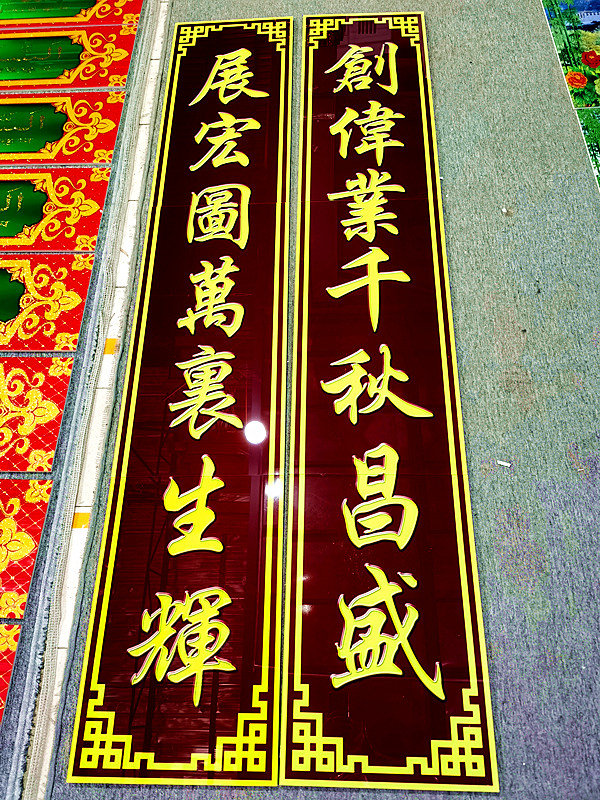 創偉業千秋昌盛
展宏圖萬裏生輝